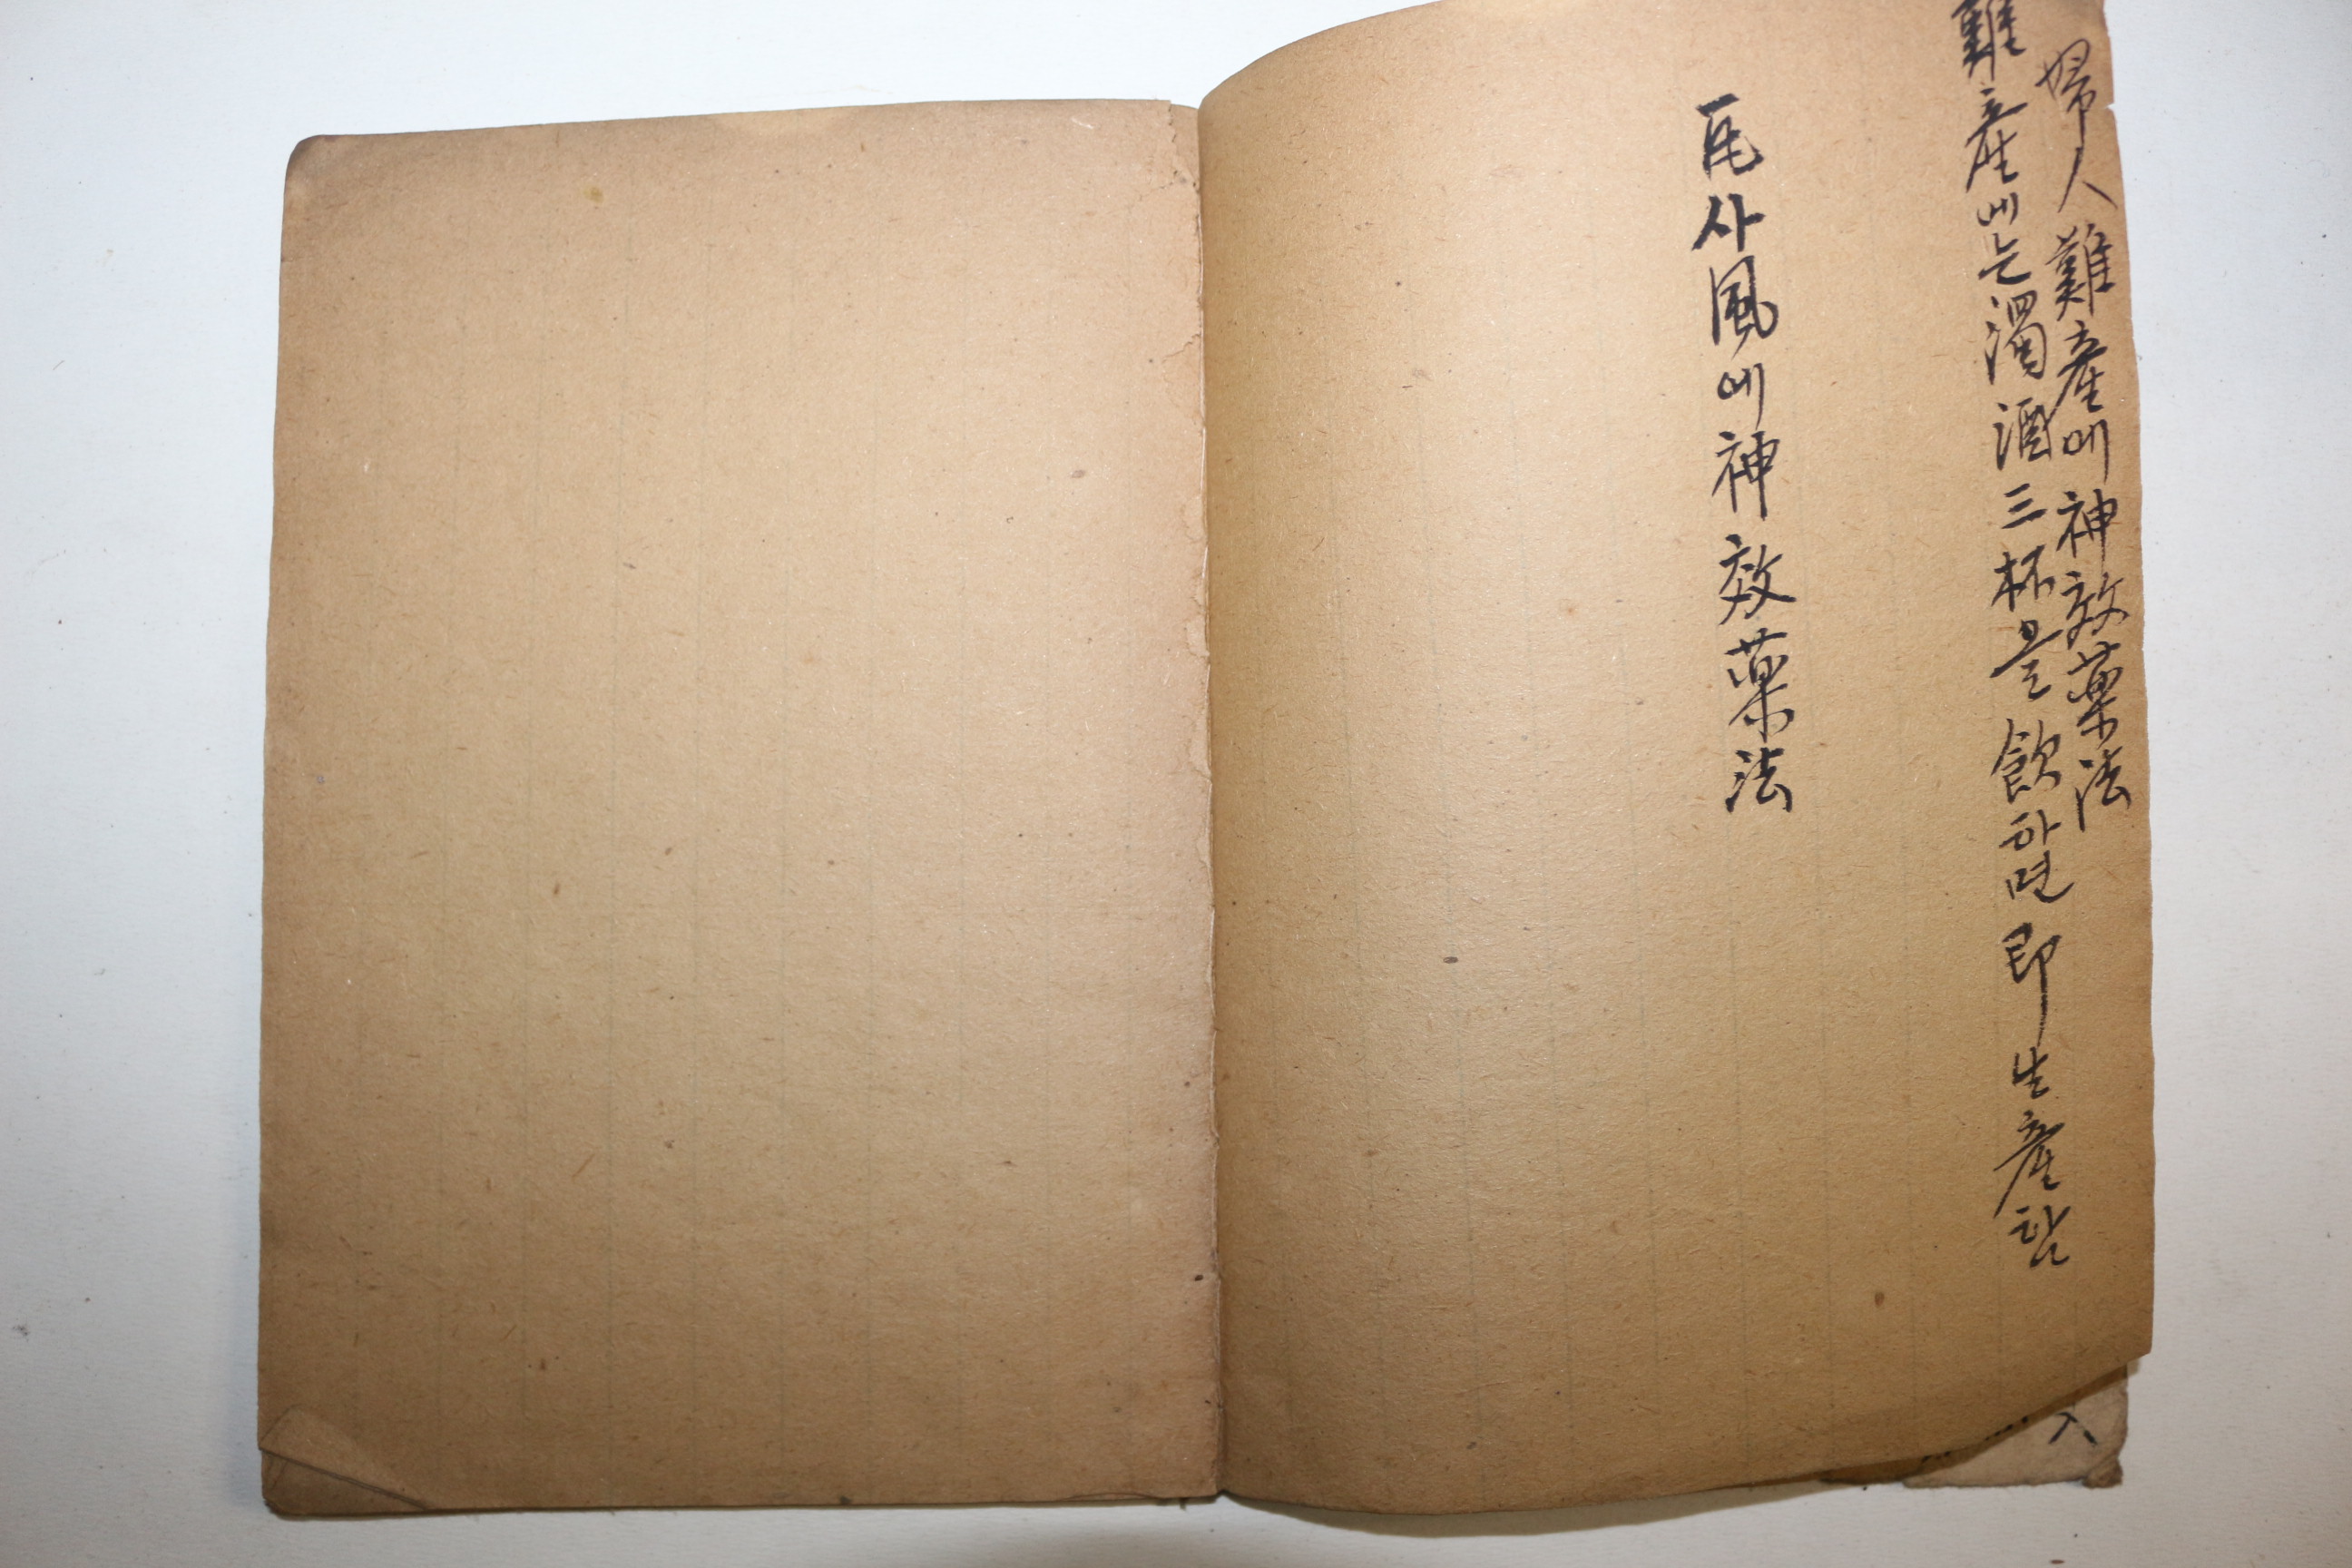 婦人難産에神效薬法
難産에는濁酒三杯을飮하면即生産함
瓦사風에神效薬法
入